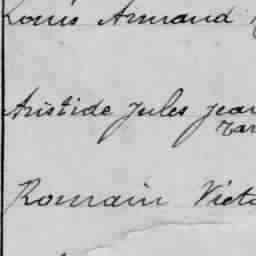 Louis Armand
Aristide Jules Jean
Romain Victo